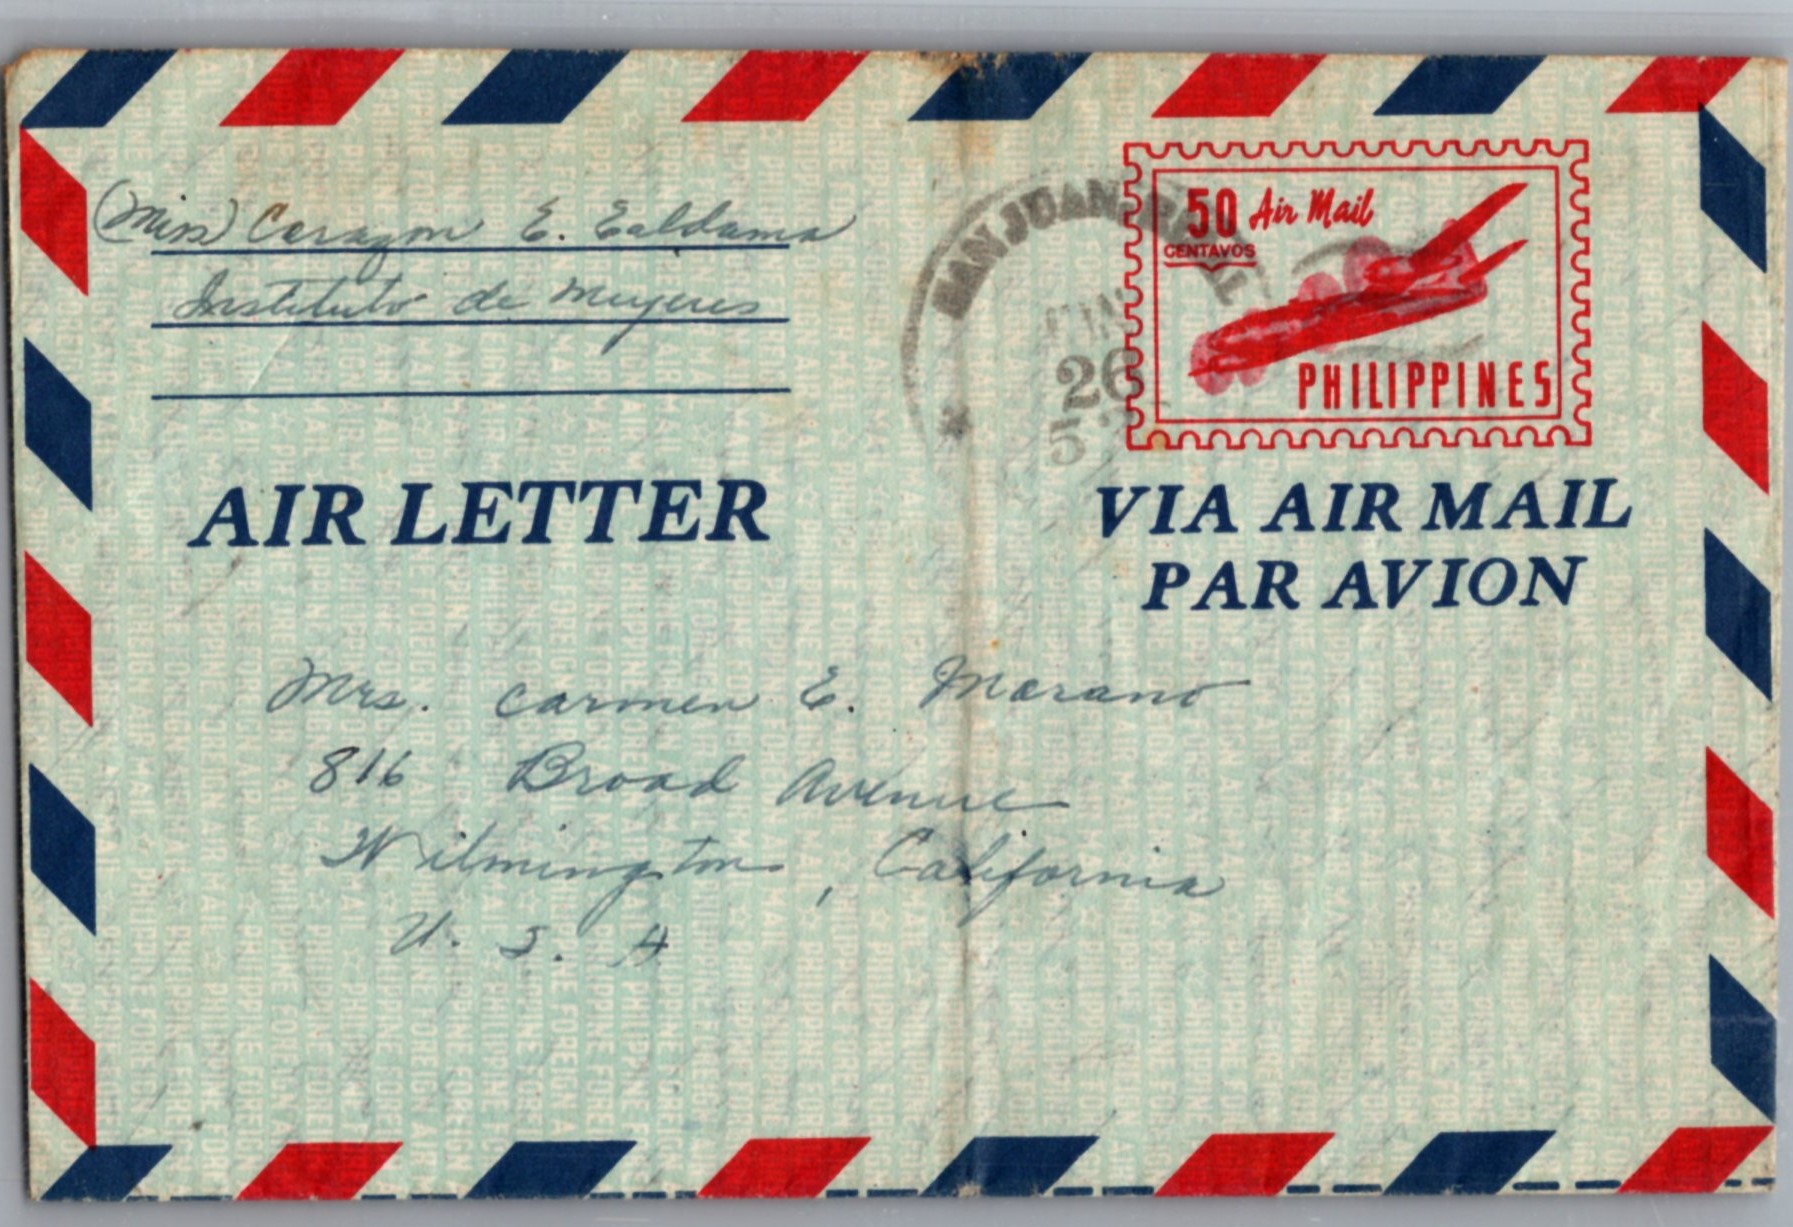 (Miss) Corazon E. Ealdama
Instituto de Mujeres
SAN JUAN
26
5
50 Air Mail
CENTAVOS
PHILIPPINES
AIR LETTER
VIA AIR MAIL
PAR AVION
Mrs. Carmen E. Morano
816 Broad Avenue
Wilmington, California
U. S. A